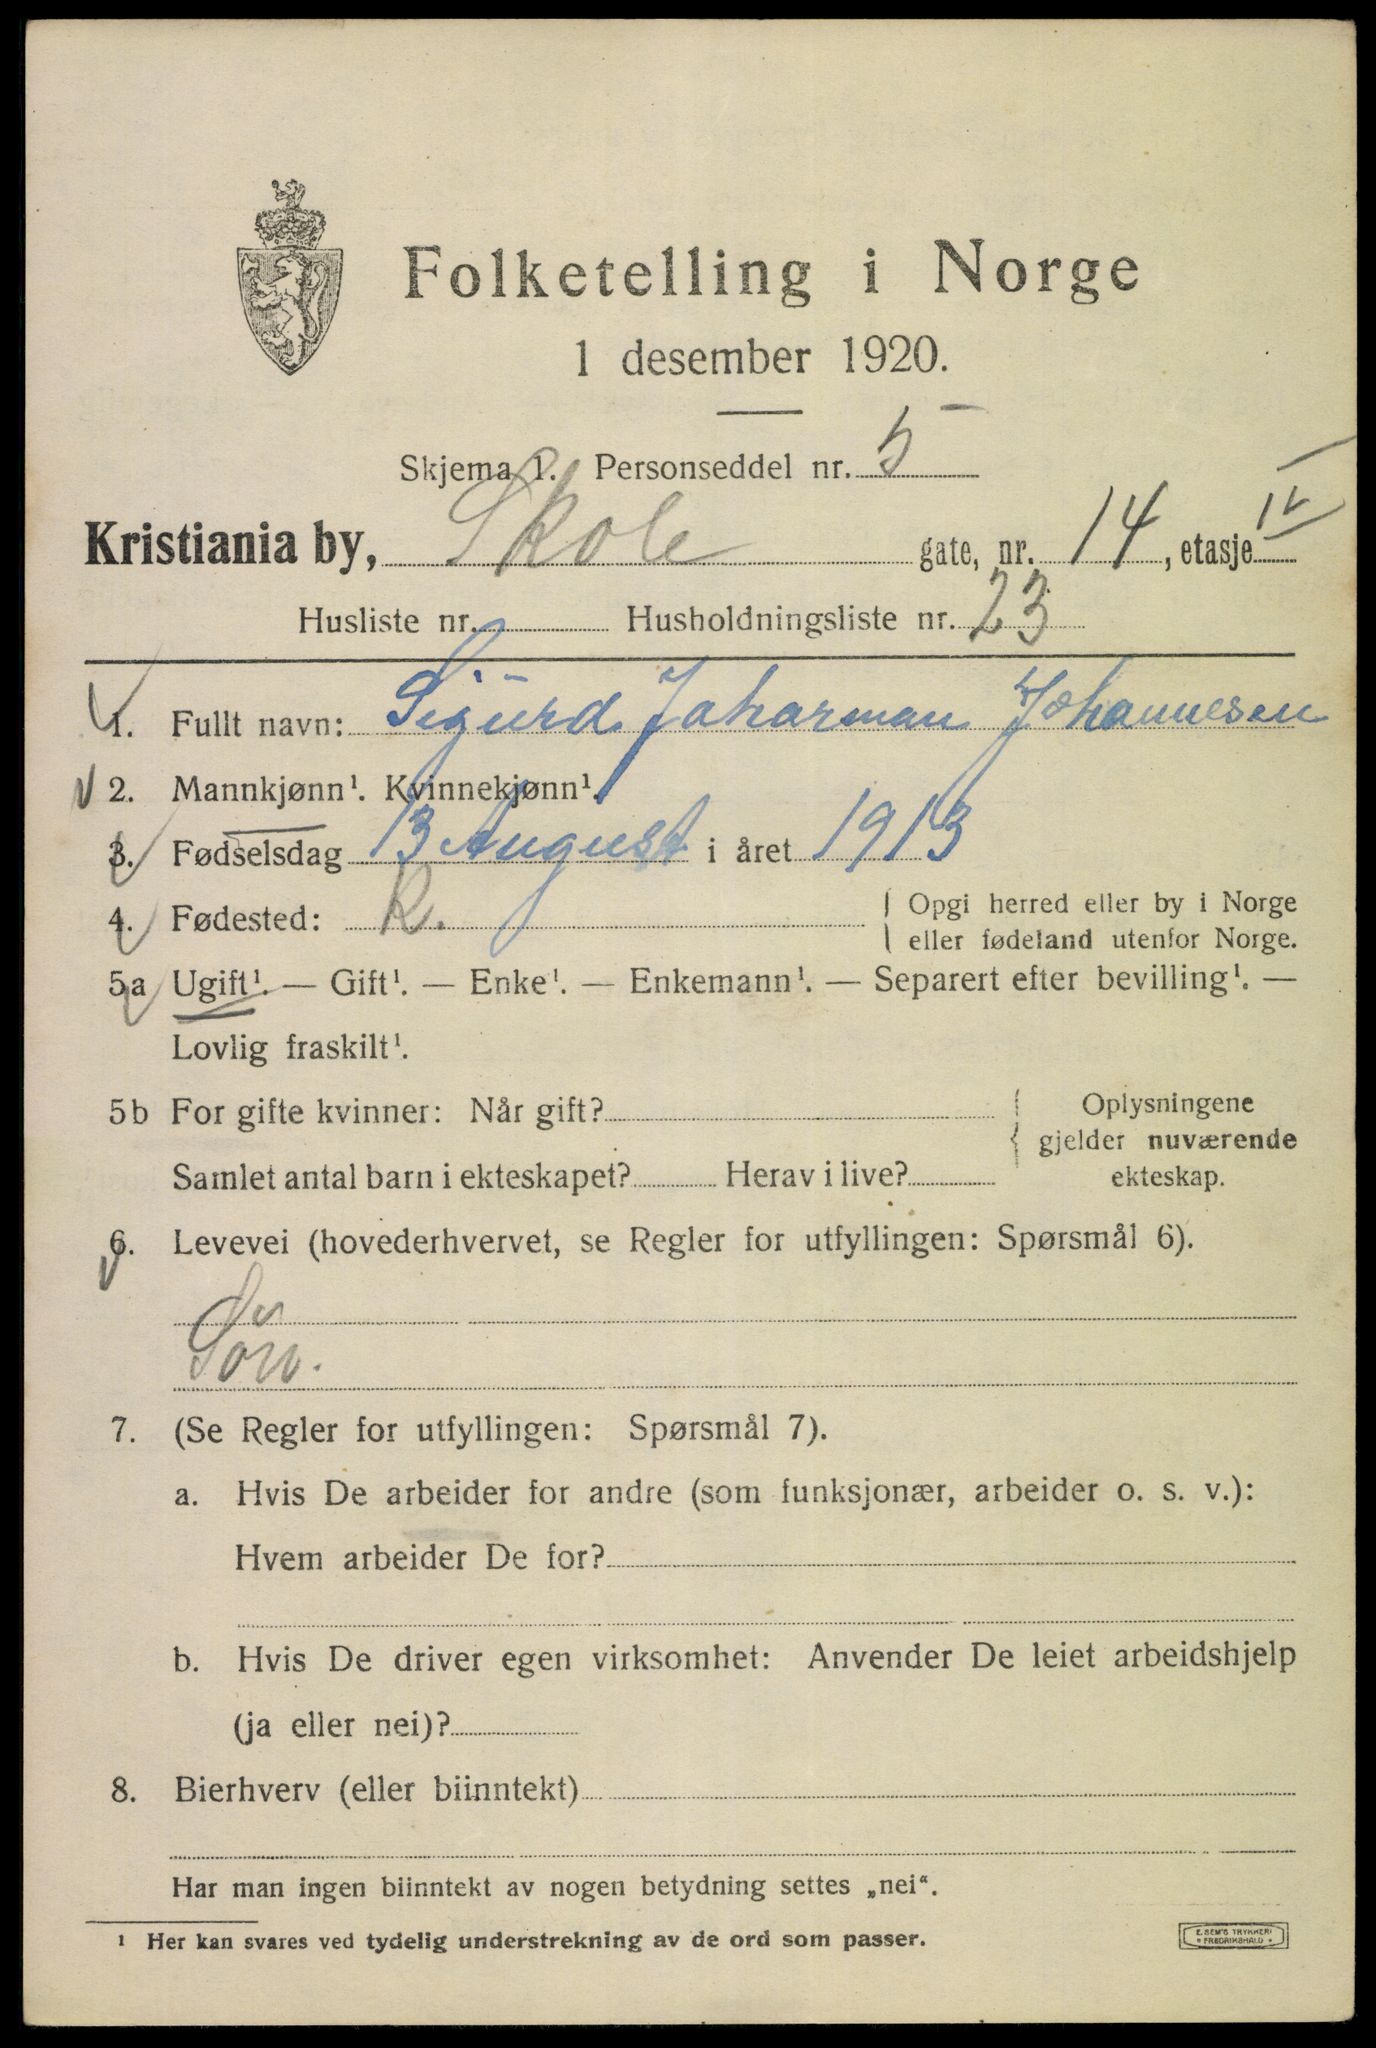 Folketelling i Norge
1 desember 1920.
Skjema 1. Personseddel nr. 5
Kristiania by, Skole gate, nr. 14, etasje IV
Husliste nr. Husholdningsliste nr. 23
1. Fullt navn: Sigurd Joharman Johannesen
2. Mannkjønn¹. Kvinnekjønn¹.
3. Fødselsdag 13 August i året 1913
4. Fødested: K. Opgi herred eller by i Norge
eller fødeland utenfor Norge.
5a Ugift¹. — Gift¹. — Enke¹. — Enkemann¹. — Separert efter bevilling¹. —
Lovlig fraskilt¹.
5b For gifte kvinner: Når gift? Oplysningene
gjelder nuværende
Samlet antal barn i ekteskapet? Herav i live? ekteskap.
6. Levevei (hovederhvervet, se Regler for utfyllingen: Spørsmål 6).
Søn.
7. (Se Regler for utfyllingen: Spørsmål 7).
a. Hvis De arbeider for andre (som funksjonær, arbeider o. s. v.):
Hvem arbeider De for?
b. Hvis De driver egen virksomhet: Anvender De leiet arbeidshjelp
(ja eller nei)?
8. Bierhverv (eller biinntekt)
Har man ingen biinntekt av nogen betydning settes „nei“.
¹ Her kan svares ved tydelig understrekning av de ord som passer.
E. SEM'S TRYKKERI
FREDRIKSHALD